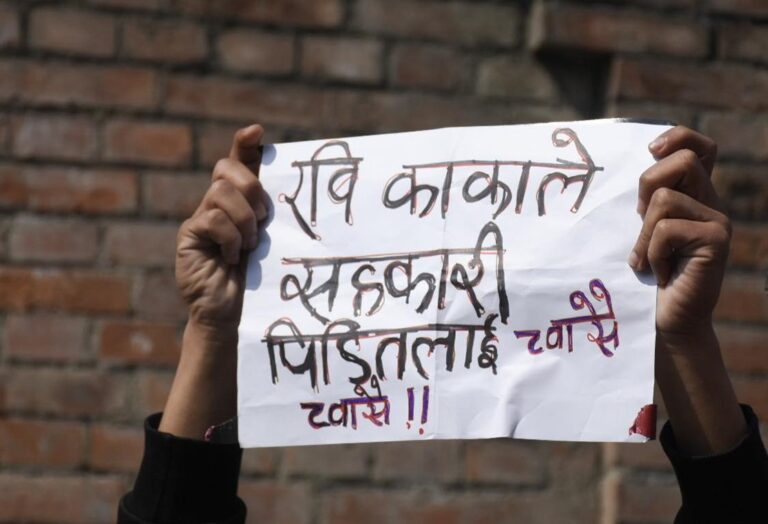 रवि काकाले
सहकारी
पिडितलाई च्वास्सै
च्वास्सै !!